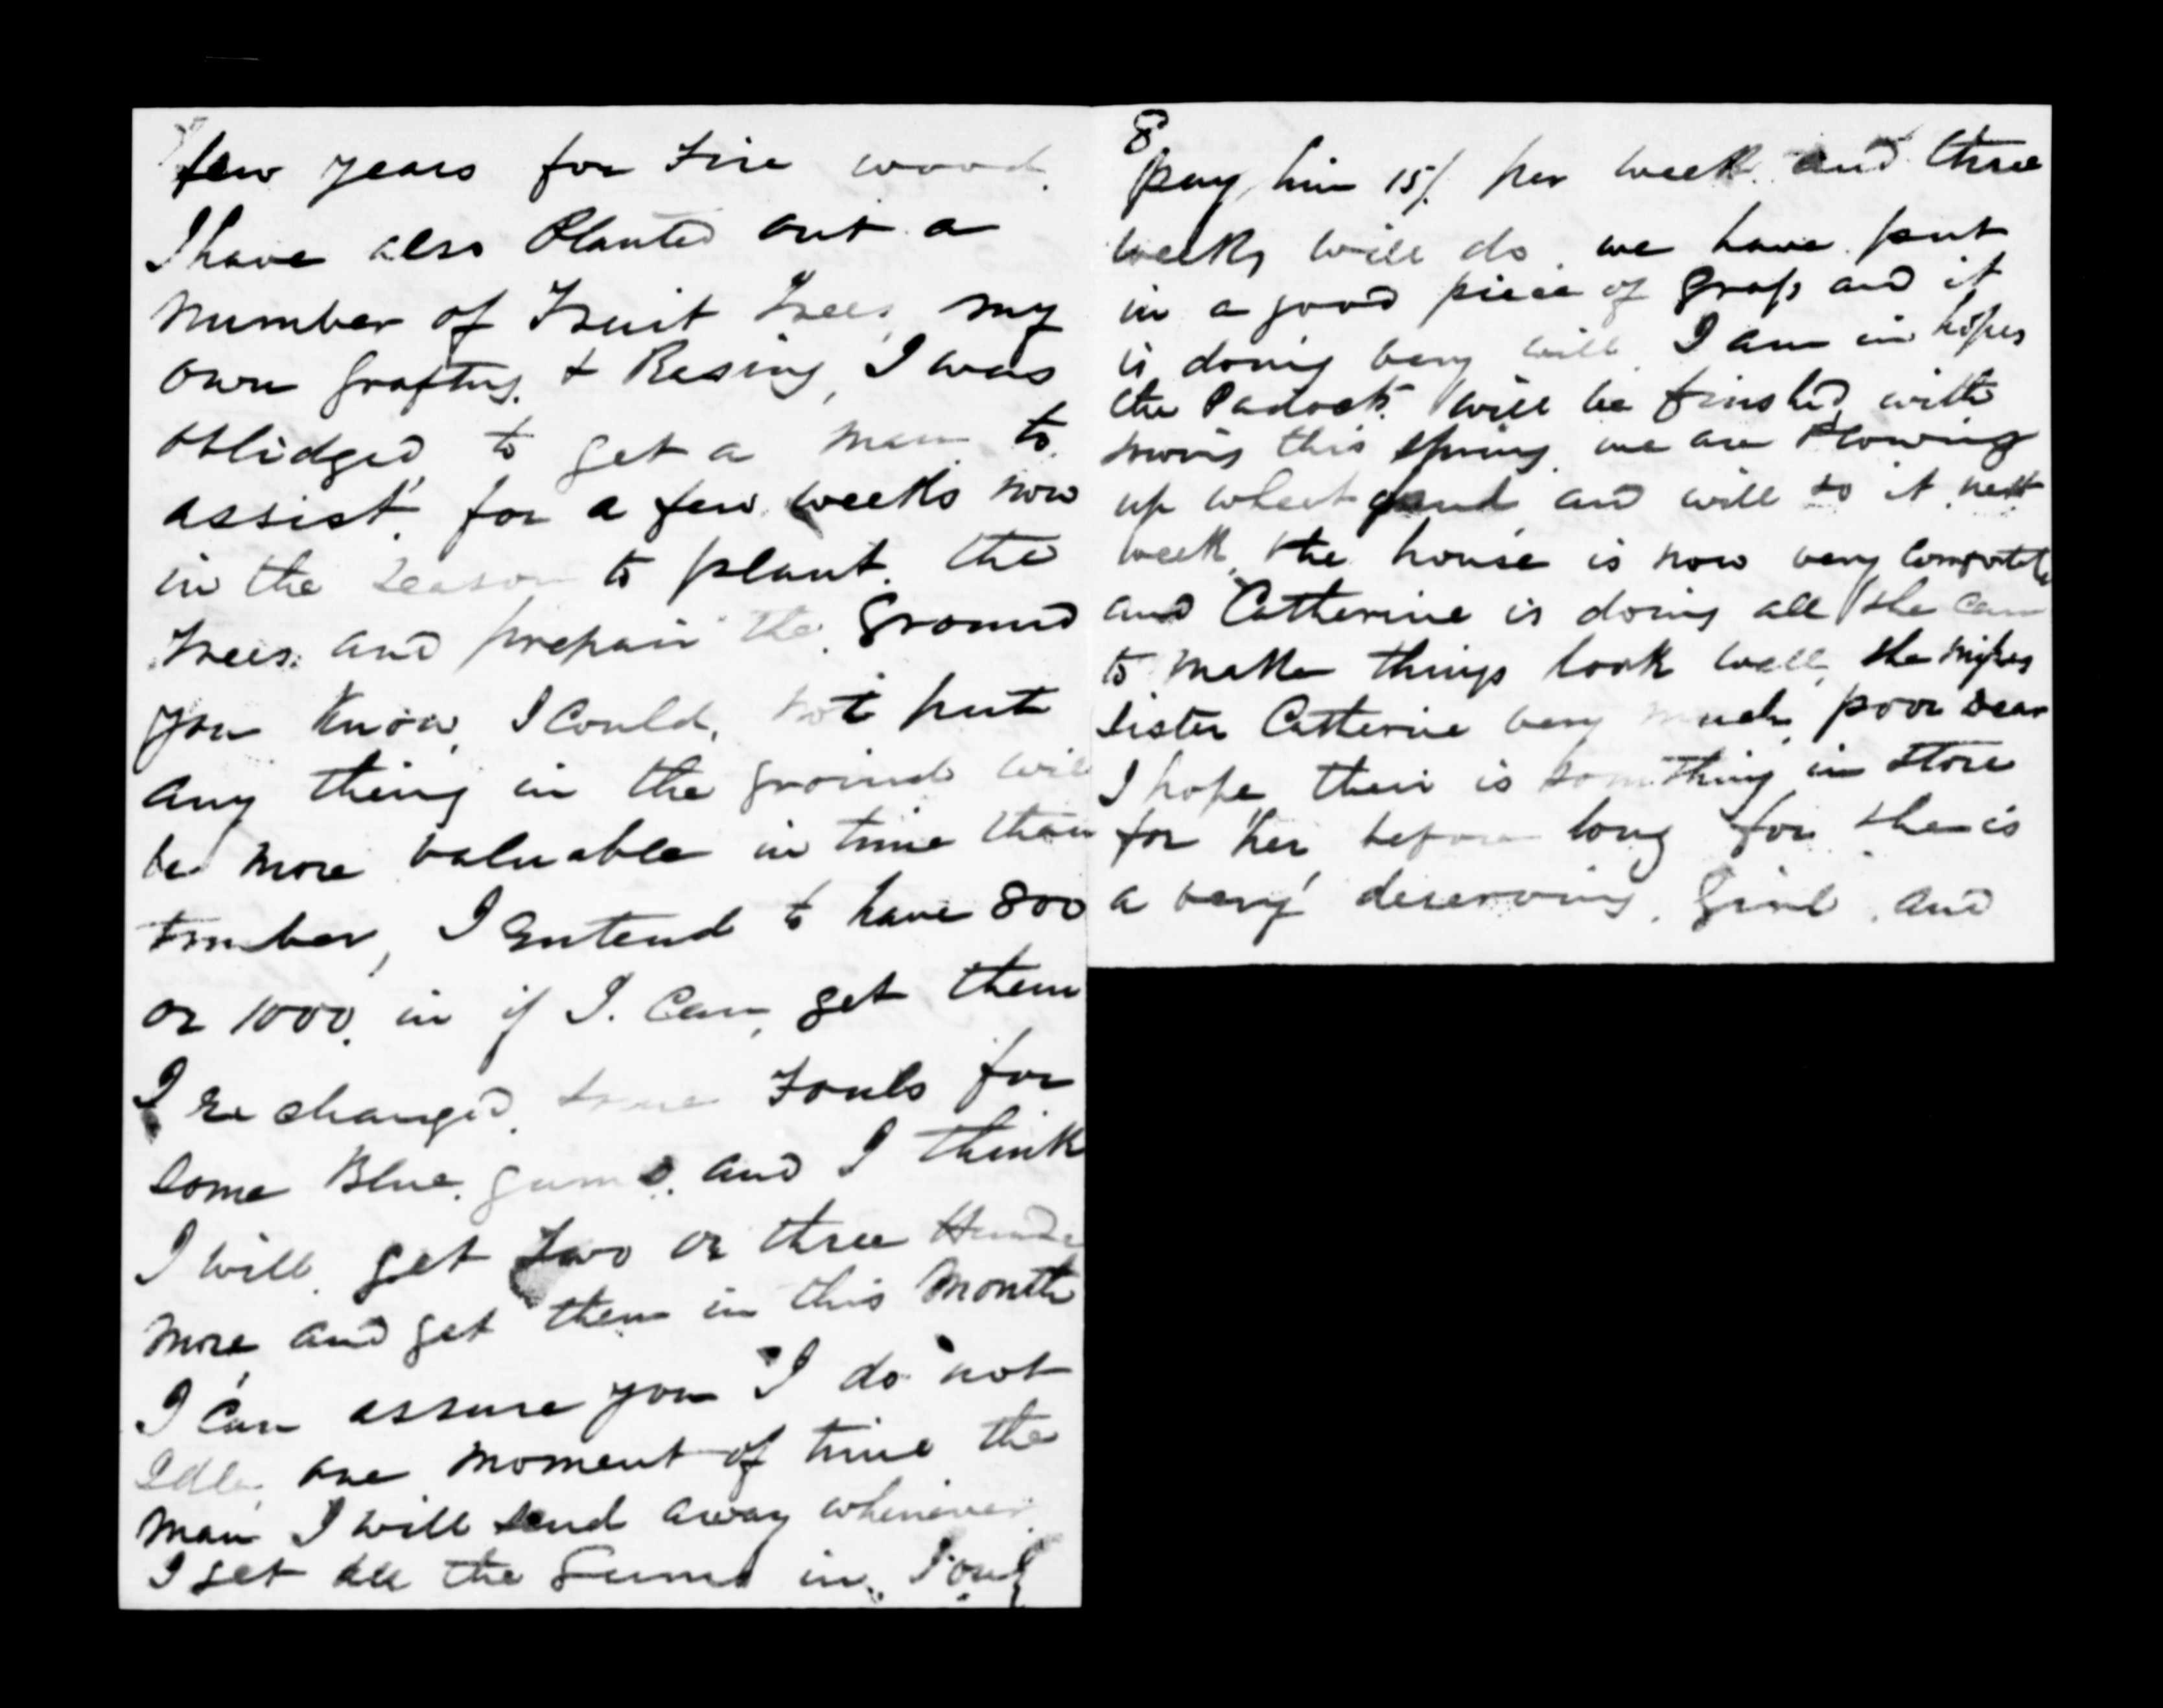 few years for Fire wood.
I have also Planted out a
number of Fruit Trees, my
own grafting. & Rasing, I was
oblidged to get a man to
assist. for a few weeks now
in the season to plant. the
Trees. and prepair the. ground
you know, I could, not put
any thing in the ground will
be more valuable in time than
timber, I Entend to have 800
or 1000. in if I. can, get them
I Exchanged. some Fouls for
some Blue. gums. and I think
I will. get Two or three
more, and get them in this Month
I can assure you I do not
Idle, one moment of time the
man I will send away whenever
I get all the Gums in. I only
8
pay, him 15/. per week. and three
weeks will do. we have. put
in a good piece of grass and it
is doing very will. I am in hopes
the Padock. will be finshed with
sowing this spring. we are Plowing
up wheet and will so it next
week. the house is now very
and Catherine is doing all she can
to make things look well, she
sister Catherine very much, poor Dear
I hope their is something in store
for her before long for she is
a very deserving. Girl. and